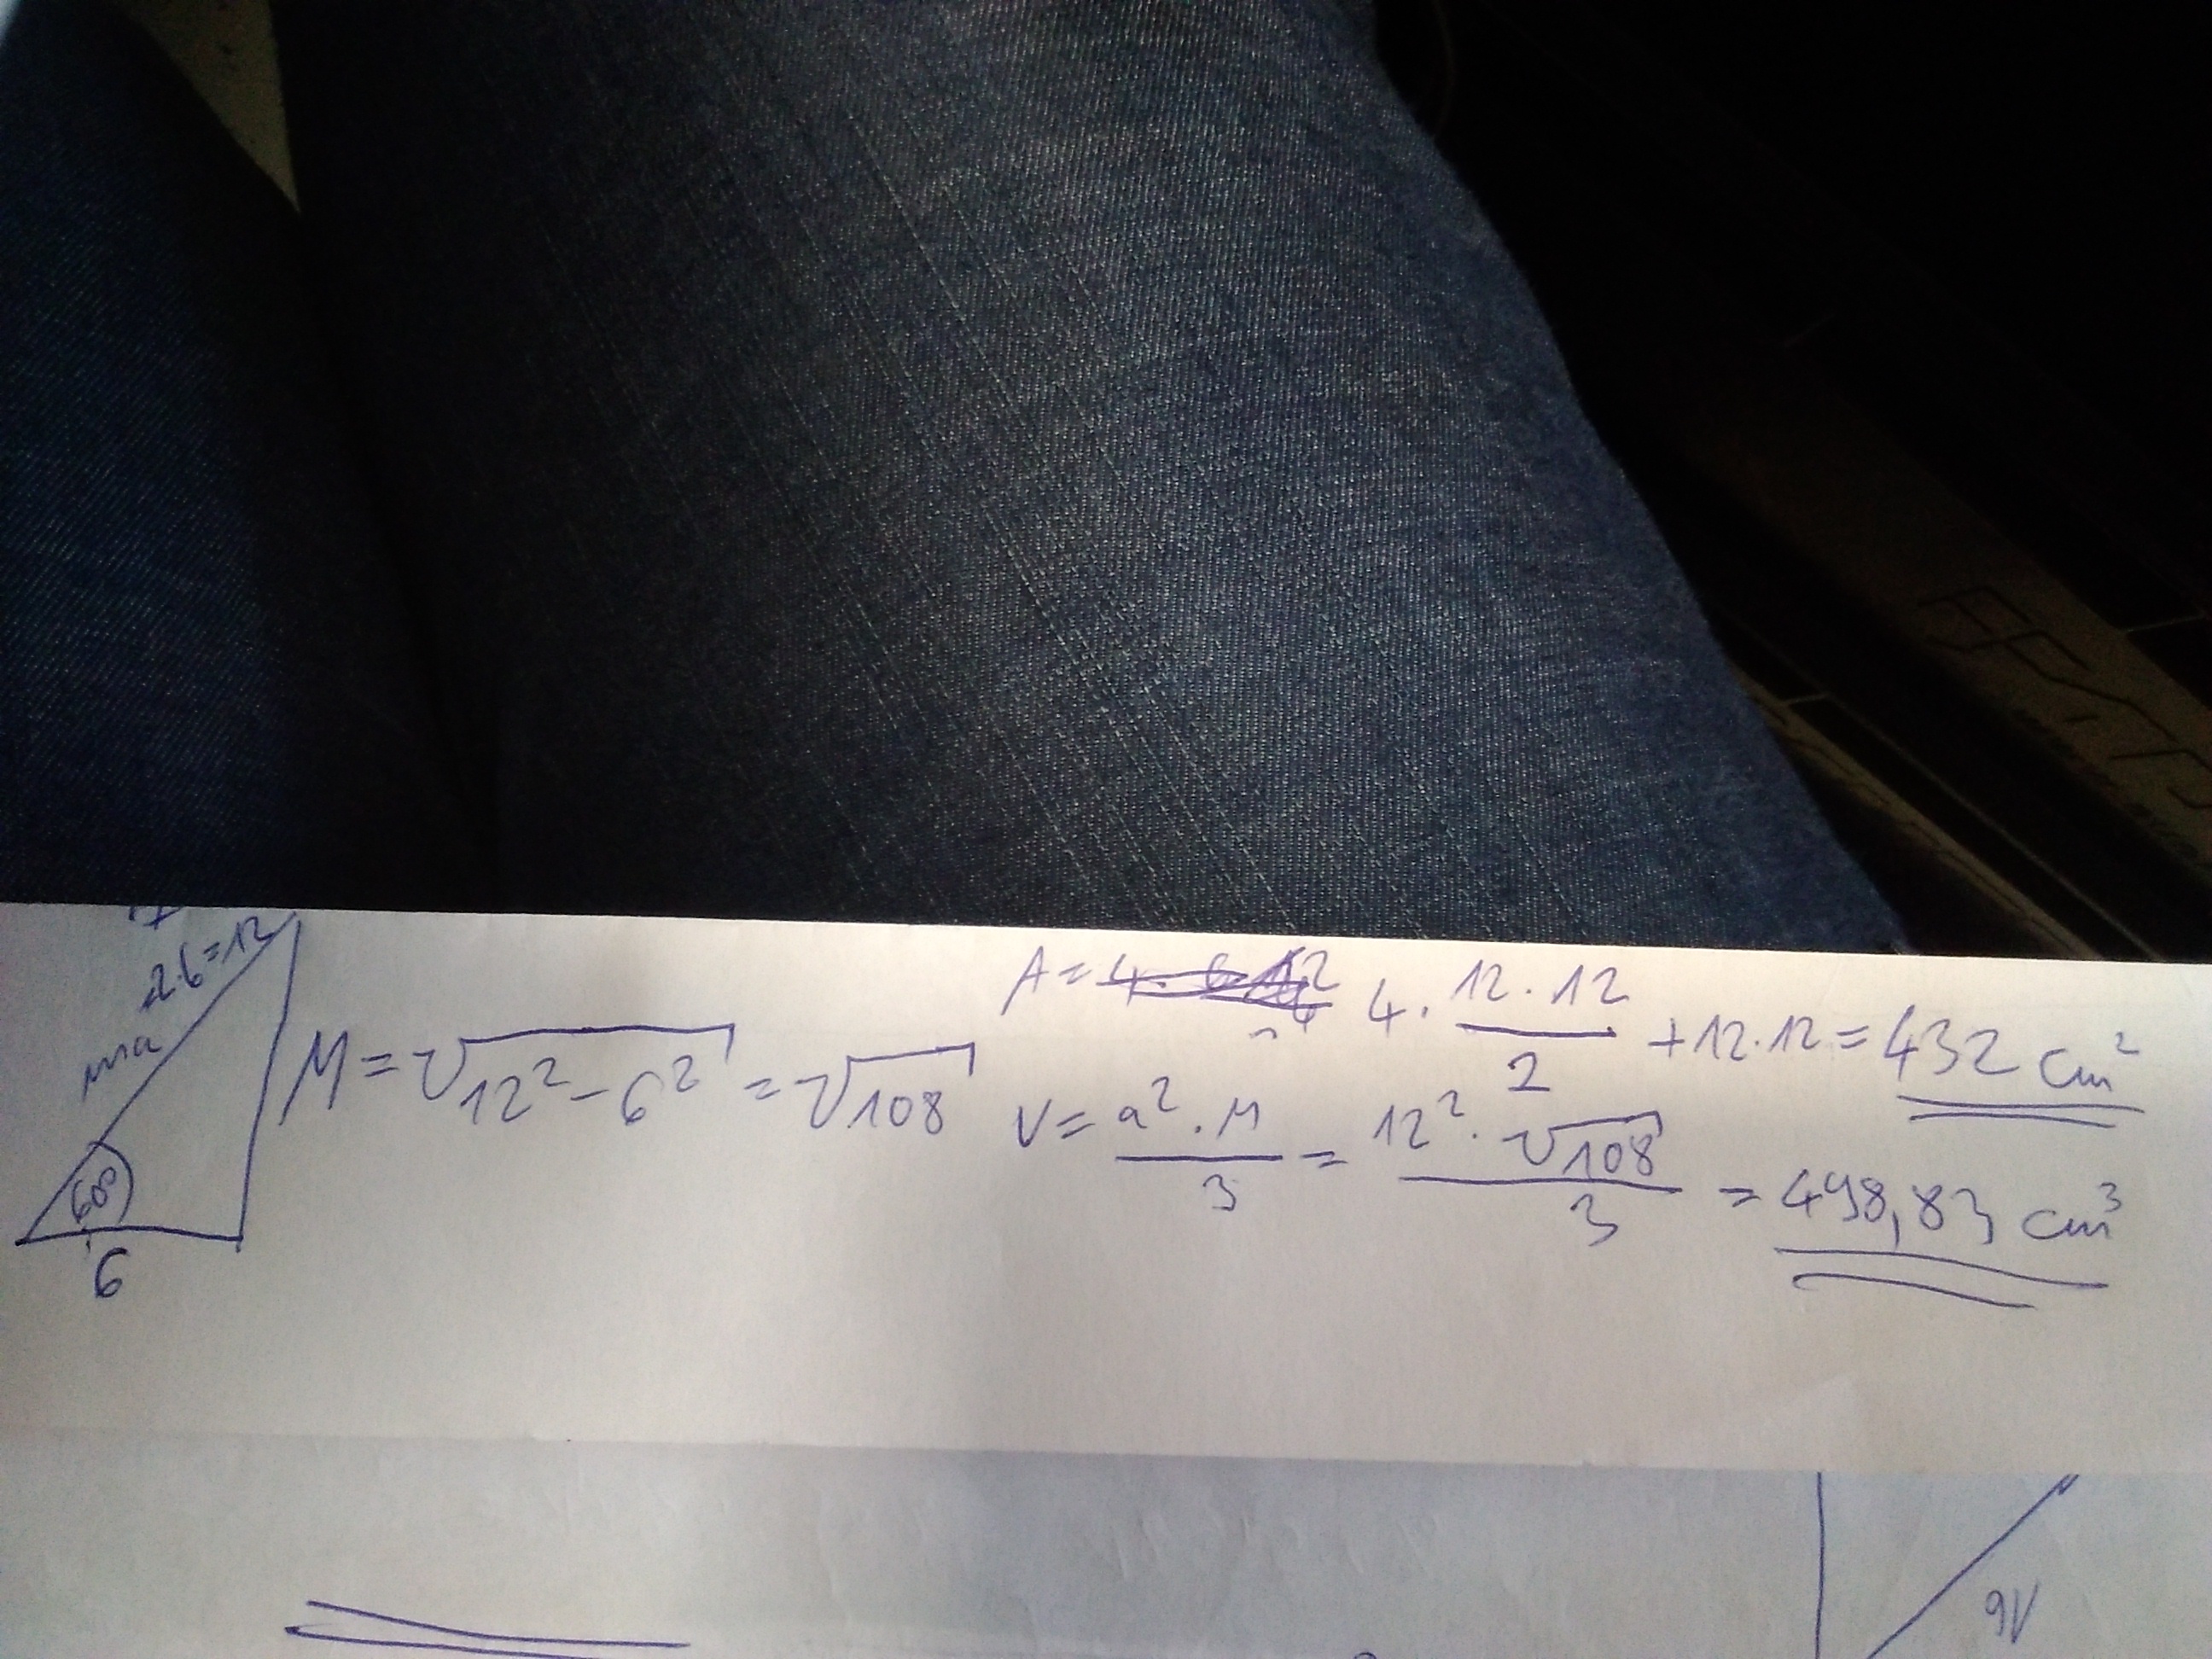 2·6=12
ma
60°
6
M = √12² - 6² = √108
A = 4 · 12 · 12 / 2 + 12 · 12 = 432 cm²
V = a² · M / 3 = 12² · √108 / 3 = 498,83 cm³